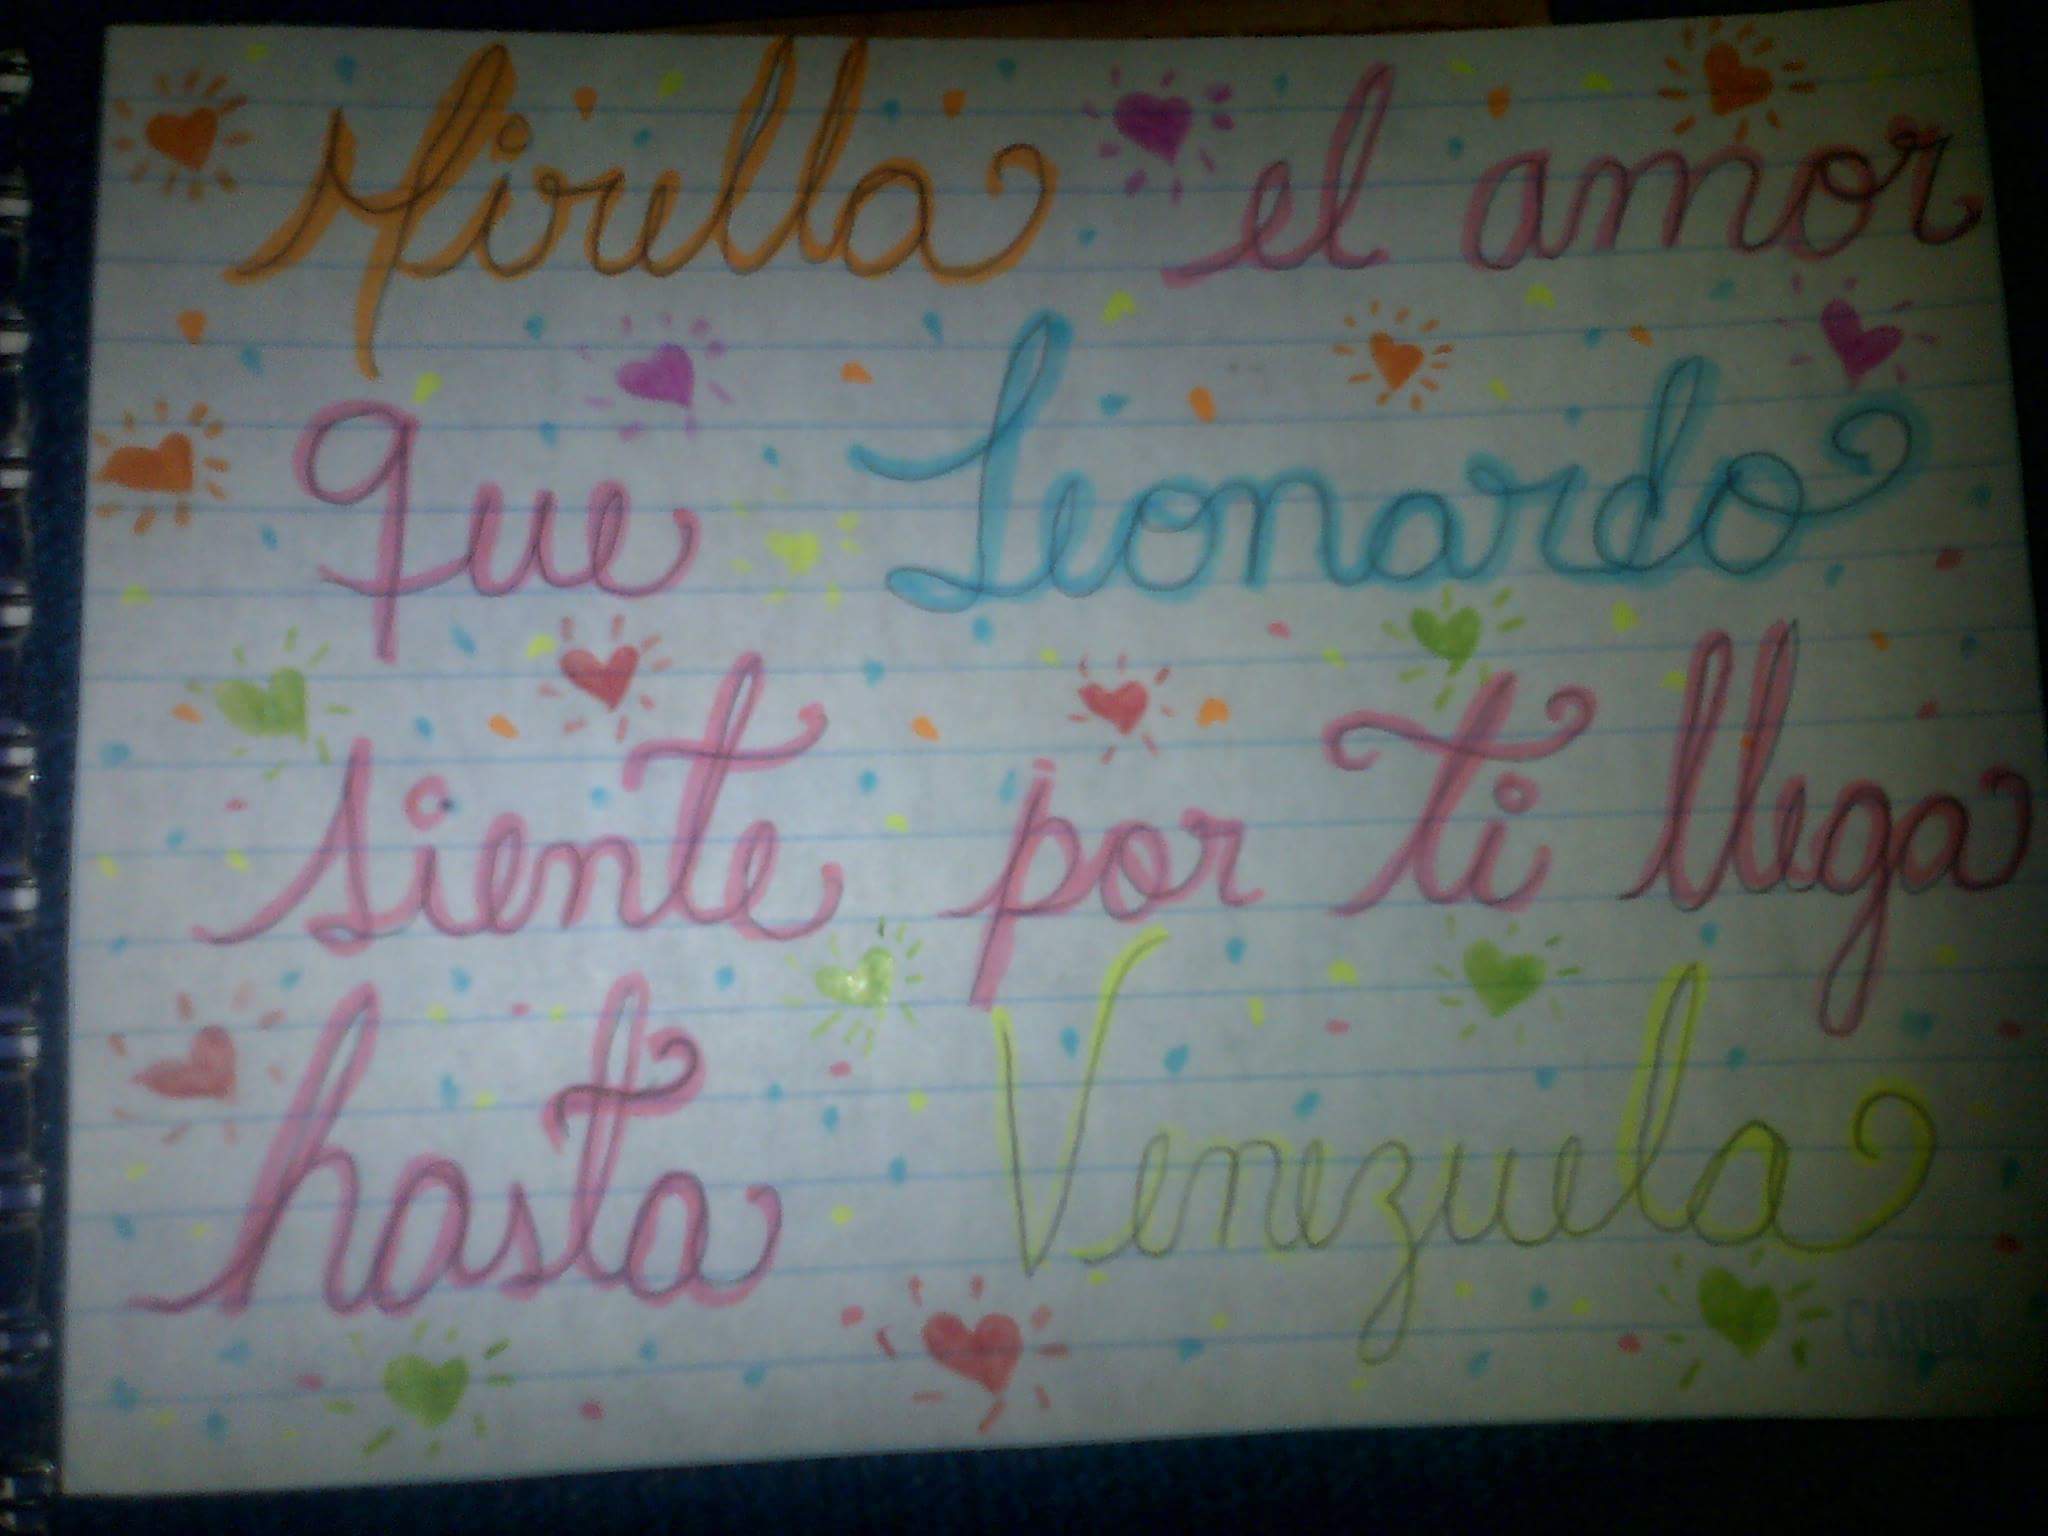 Mirella el amor
que Leonardo
siente por ti llega
hasta Venezuela